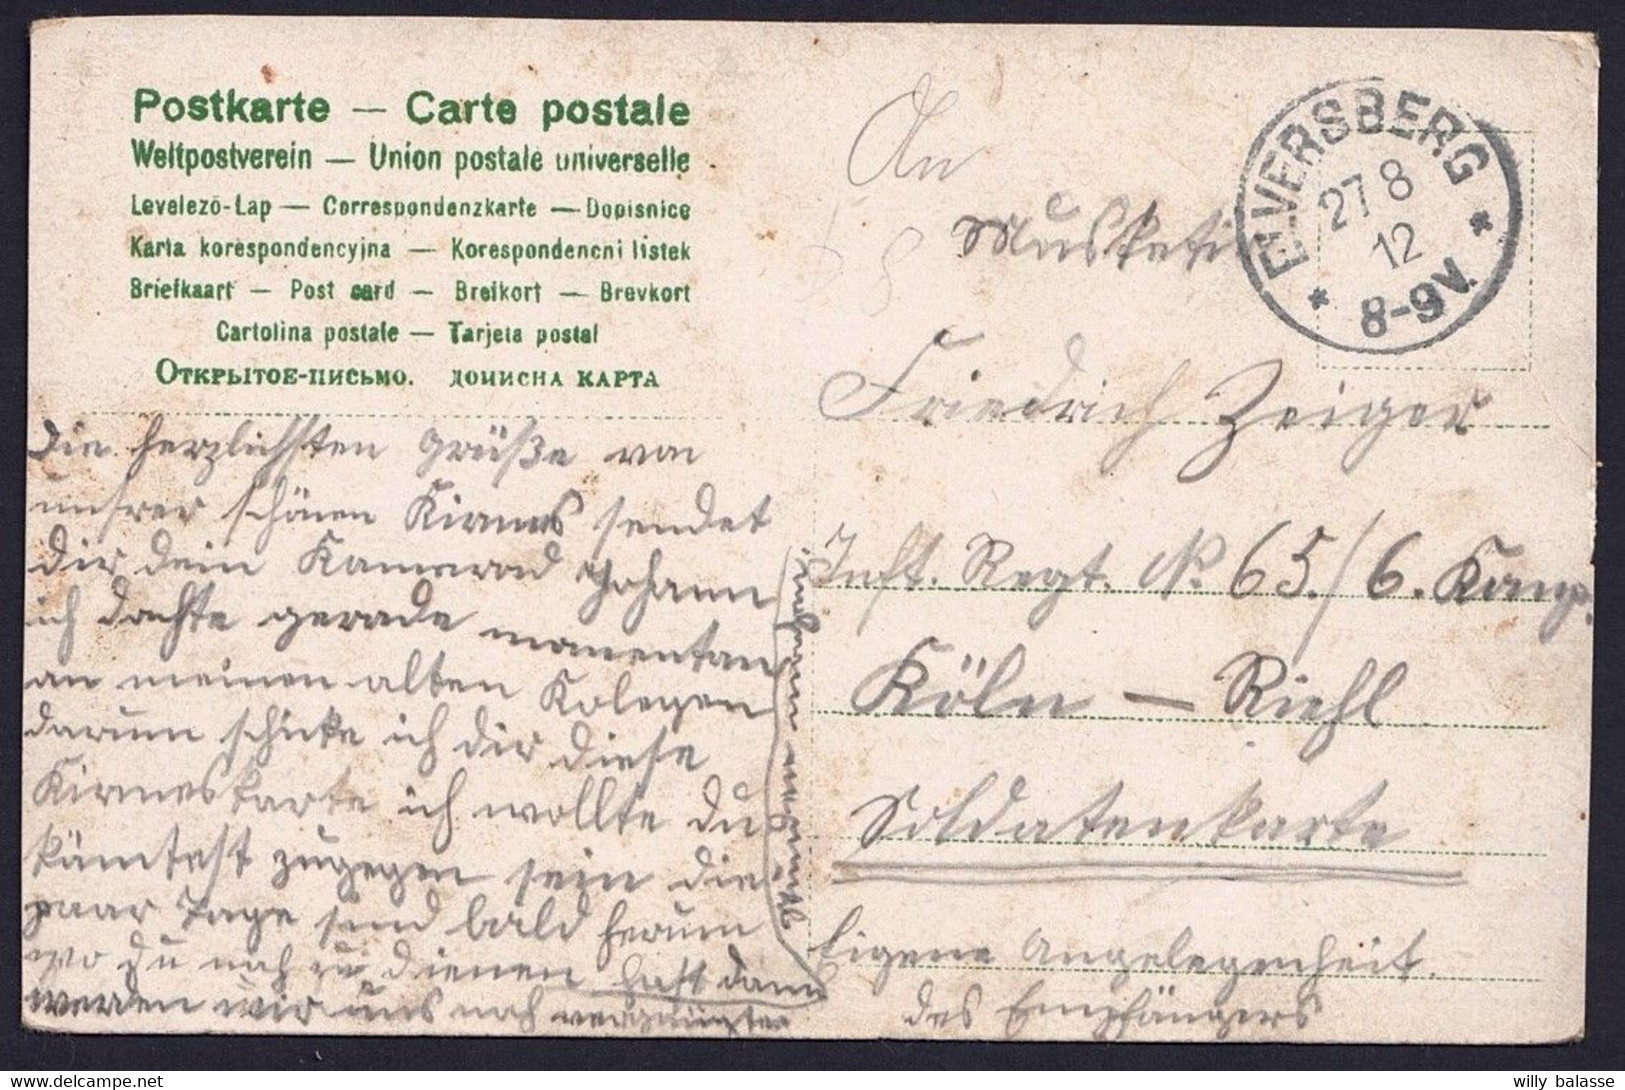 Postkarte — Carte postale
Weltpostverein — Union postale universelle
Levelező-Lap — Correspondenzkarte — Dopisnice
Karta korespondencyjna — Korespondencni listek
Briefkaart — Post card — Brefkort — Brevkort
Cartolina postale — Tarjeta postal
Открытое-письмо. дописна карта
An
Musketi
Friedrich Zeiger
Inft. Regt. No. 65./6. Komp.
Köln — Riehl
Soldatenkarte
Eigene Angelegenheit
des Empfängers
ELVERSBERG
27 8
12
8-9V.
Die herzlichsten Grüße von
unsrer schönen Kirmes sendet
dir dein Kamerad Johann
ich dachte gerade momentan
an meinen alten Kolegen
darum schicke ich dir diese
Kirmeskarte ich wollte du
kämtest zugegen sein die
paar Tage sind bald herum
wo du noch zu dienen hast dann
werden wir uns noch
willy balasse